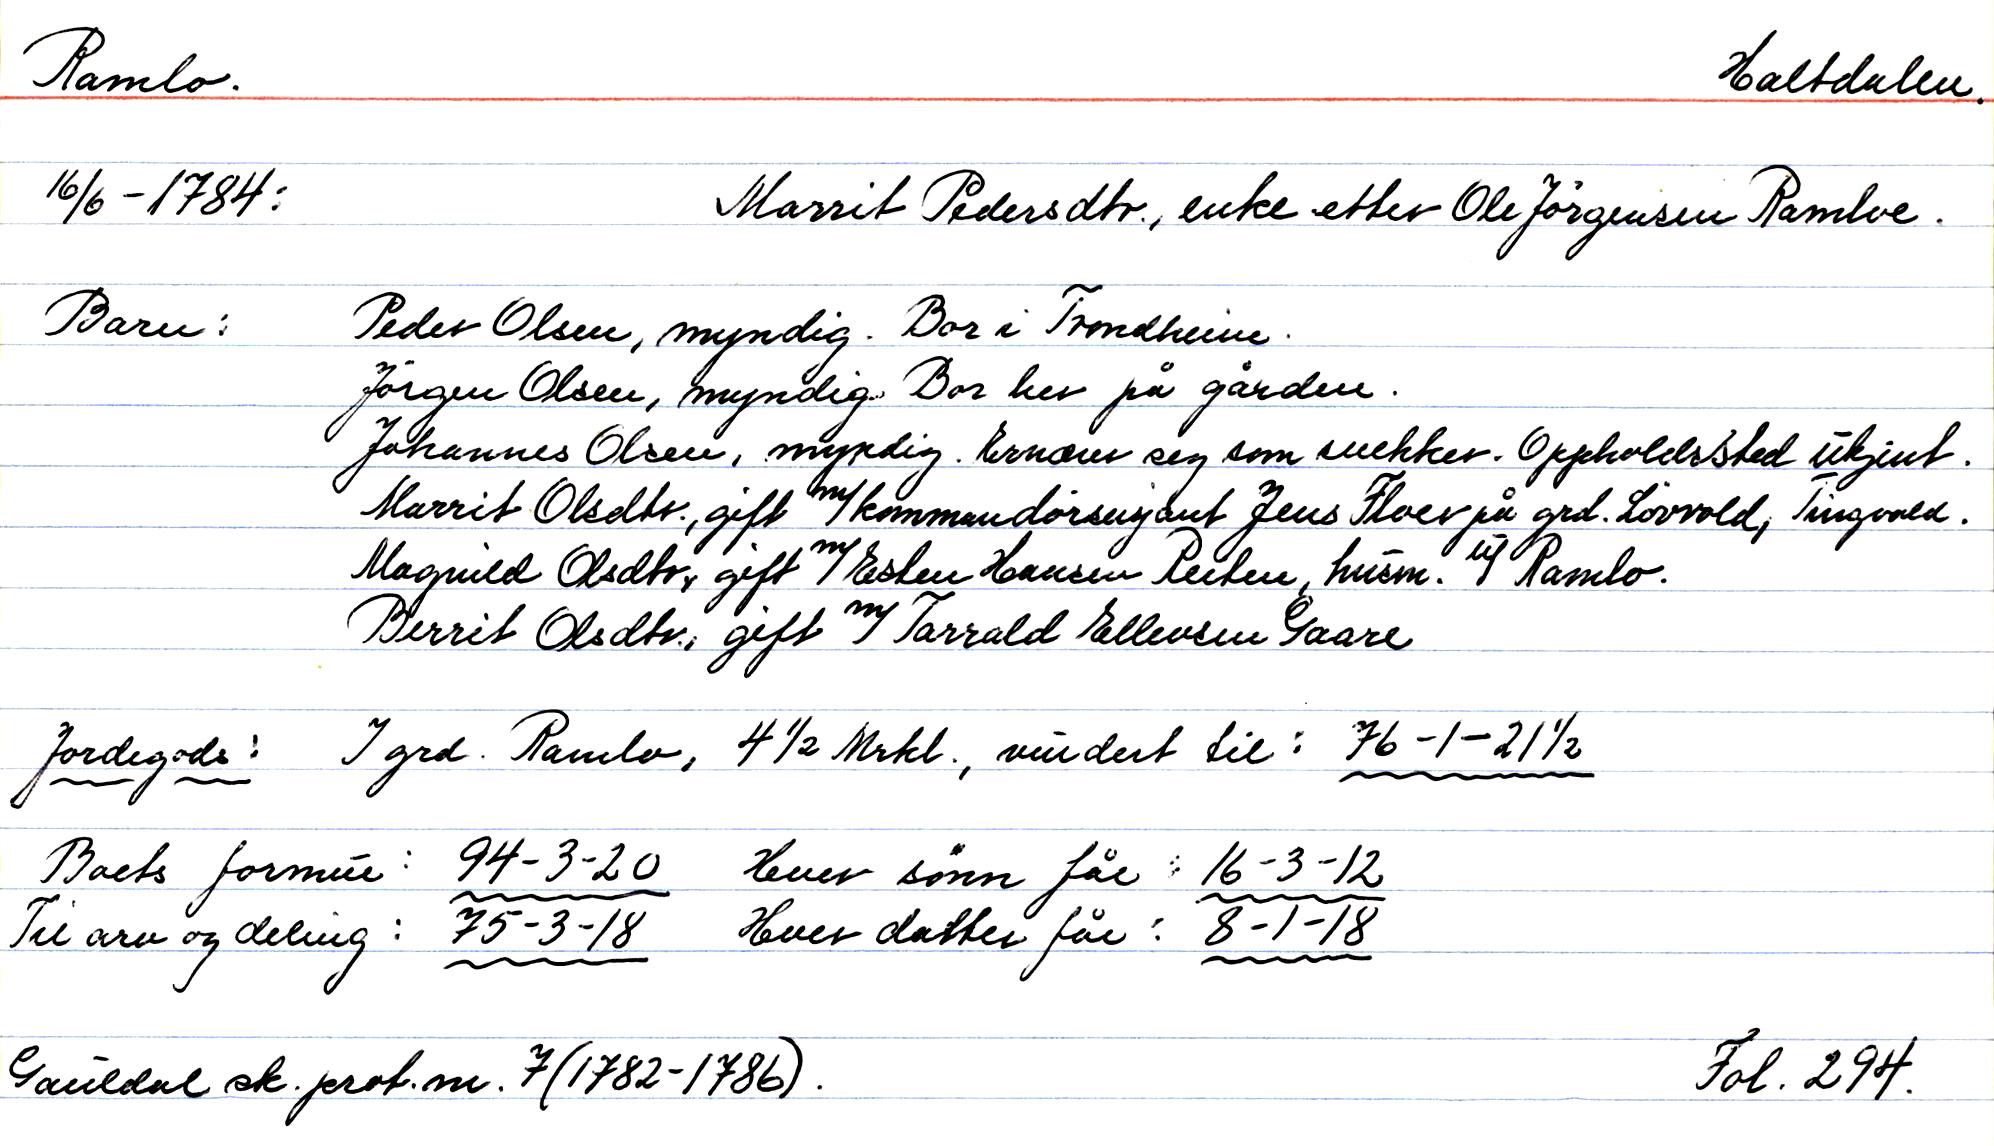 Ramlo. Haltdalen.
16/6 - 1784: Marrit Pedersdtr., enke etter Ole Jörgensen Ramloe.
Barn: Peder Olsen, myndig. Bor i Trondheim.
Jörgen Olsen, myndig. Bor her på gården.
Johannes Olsen, myndig. Ernærer seg som snekker. Oppholdssted ukjent.
Marrit Olsdtr., gift m/ kommandörsersjant Jens Floer på grd. Lövvold, Tingvold.
Magnild Olsdtr., gift m/ Esten Hansen Reiten, husm. u/ Ramlo.
Berrit Olsdtr., gift m/ Tarrald Ellevsen Gaare
Jordegods: I grd. Ramlo, 4 1/2 Mrkl., vurdert til: 76-1-21 1/2
Boets formue: 94-3-20 Hver sönn får: 16-3-12
Til arv og deling: 75-3-18 Hver datter får: 8-1-18
Gauldal sk. prot. nr. 7 (1782-1786). Fol. 294.